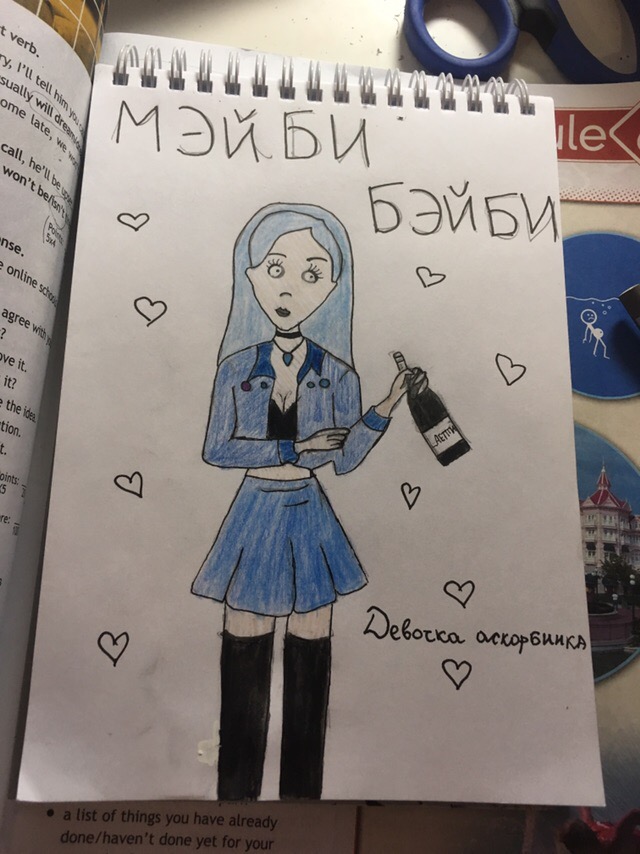 МЭЙБИ
БЭЙБИ
Девочка аскорбинка
t verb.
ry, I'll tell him you
usually will dream
ome late, we wo
call, he'll be
won't be/isn't
nse.
e online school
agree with
?
ove it.
it?
e the idea
ution.
t.
oints:
re:
ule
• a list of things you have already
done/haven't done yet for your